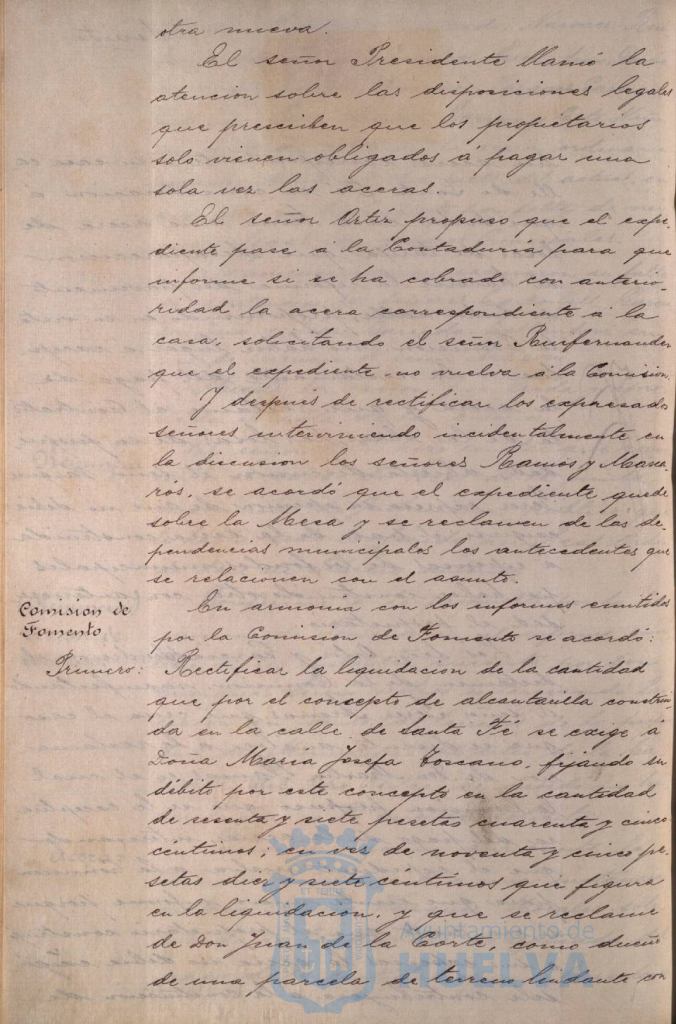 otra nueva.
El señor Presidente llamó la
atencion sobre las disposiciones legales
que prescriben que los propietarios
solo vienen obligados á pagar una
sola vez las aceras.
El señor Ortíz propuso que el expe-
diente pase á la Contaduría para que
informe si se ha cobrado con anterio-
ridad la acera correspondiente á la
casa, solicitando el señor Ruifernandez
que el expediente no vuelva á la Comision.
Y después de rectificar los expresados
señores interviniendo incidentalmente en
la discusion los señores Ramos y
rós, se acordó que el expediente quede
sobre la Mesa y se reclamen de las de-
pendencias municipales los antecedentes que
se relacionen con el asunto.
Comision de
Fomento
En armonia con los informes emitidos
por la Comision de Fomento se acordó:
Primero: Rectificar la liquidacion de la cantidad
que por el concepto de alcantarilla construi-
da en la calle de Santa Fé se exige á
Doña María Josefa Toscano, fijando su
débito por este concepto en la cantidad
de sesenta y siete pesetas cuarenta y cinco
céntimos; en vez de noventa y cinco pe-
setas diez y siete céntimos que figura
en la liquidacion, y que se reclame
de Don Juan de la Corte, como dueño
de una parcela de terreno lindante con
Ayuntamiento de
HUELVA